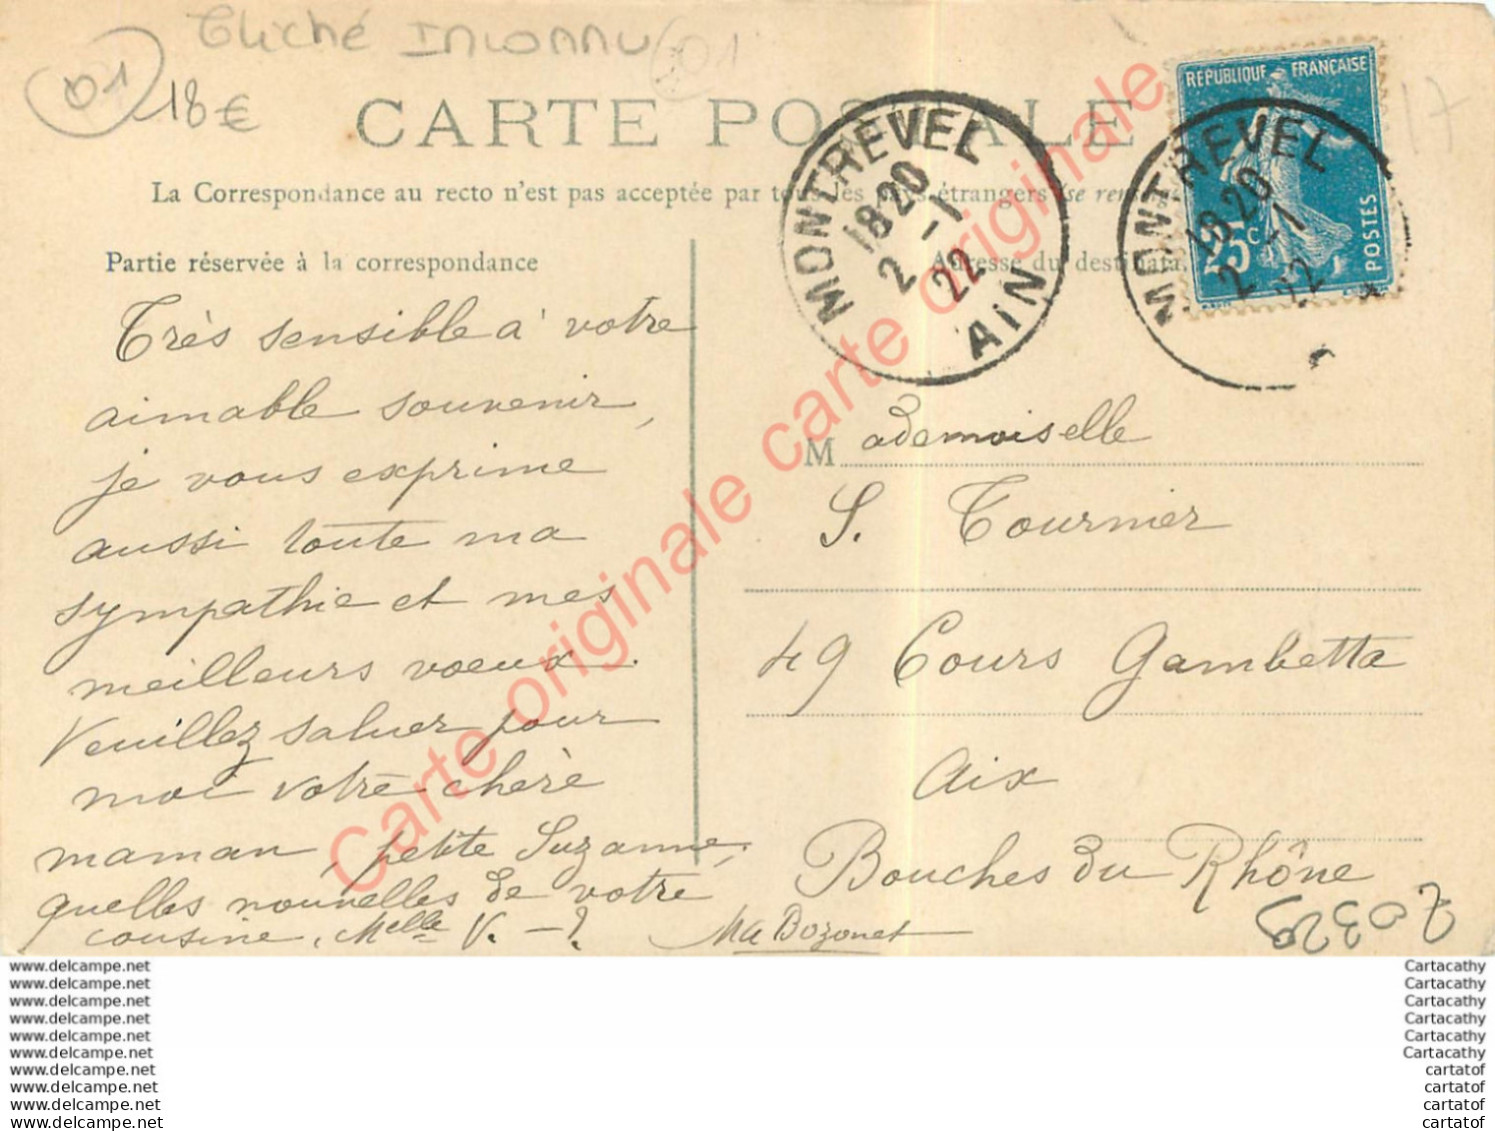 Cliché INCONNU
01
01
18€
17
CARTE POSTALE
La Correspondance au recto n'est pas acceptée par tous les pays étrangers (se
Partie réservée à la correspondance
Adresse du destinata
Très sensible à votre
aimable souvenir,
je vous exprime
aussi toute ma
sympathie et mes
meilleurs voeux.
Veuillez saluer pour
moi votre chère
maman, petite Suzanne,
quelles nouvelles de votre
cousine, Melle V. - ?
Ma Bozonet
MONTREVEL
1820
2 -1
22
AIN
REPUBLIQUE FRANÇAISE
25c
POSTES
MONTREVEL
1820
2 -1
22
Mademoiselle
S. Tournier
49 Cours Gambetta
Aix
Bouches du Rhône
Carte originale carte originale carte originale
www.delcampe.net
www.delcampe.net
www.delcampe.net
www.delcampe.net
www.delcampe.net
www.delcampe.net
www.delcampe.net
www.delcampe.net
www.delcampe.net
www.delcampe.net
Cartacathy
Cartacathy
Cartacathy
Cartacathy
Cartacathy
Cartacathy
cartatof
cartatof
cartatof
cartatof